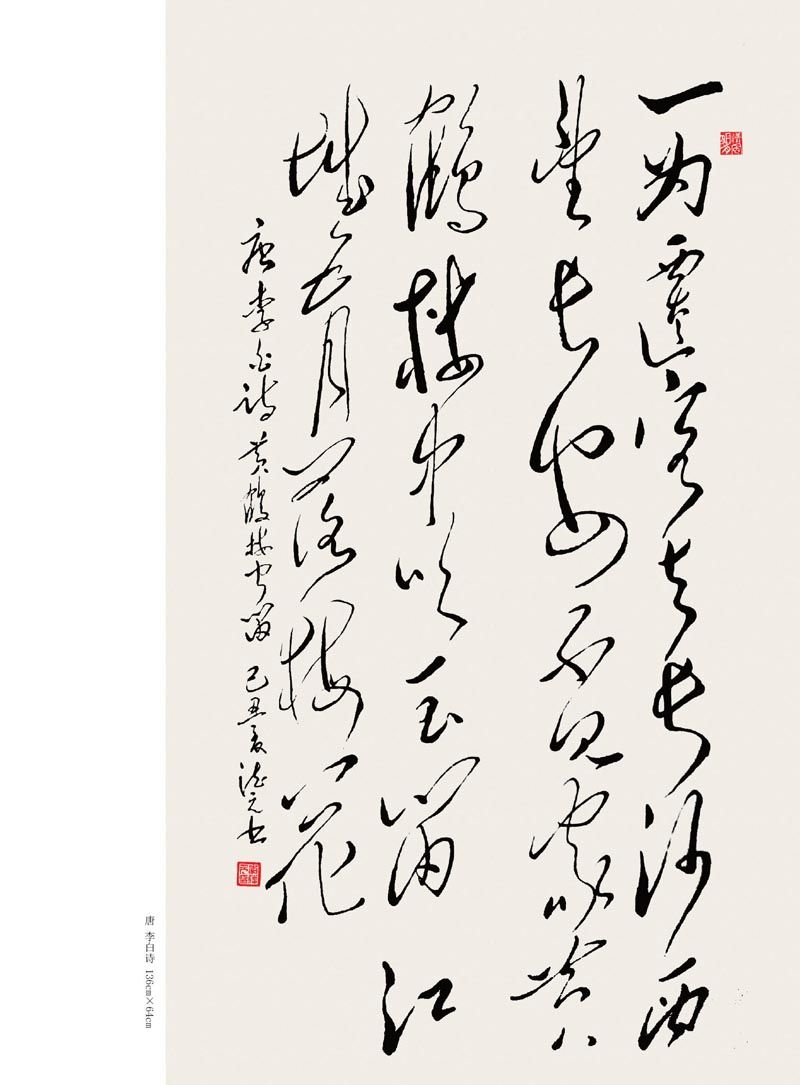 一为遷客去长沙西
望长安不见家黄
鶴楼中吹玉笛江
城五月落梅花
唐李白诗黄鶴楼闻笛 己丑夏 元书
唐 李白诗 136cm×64cm